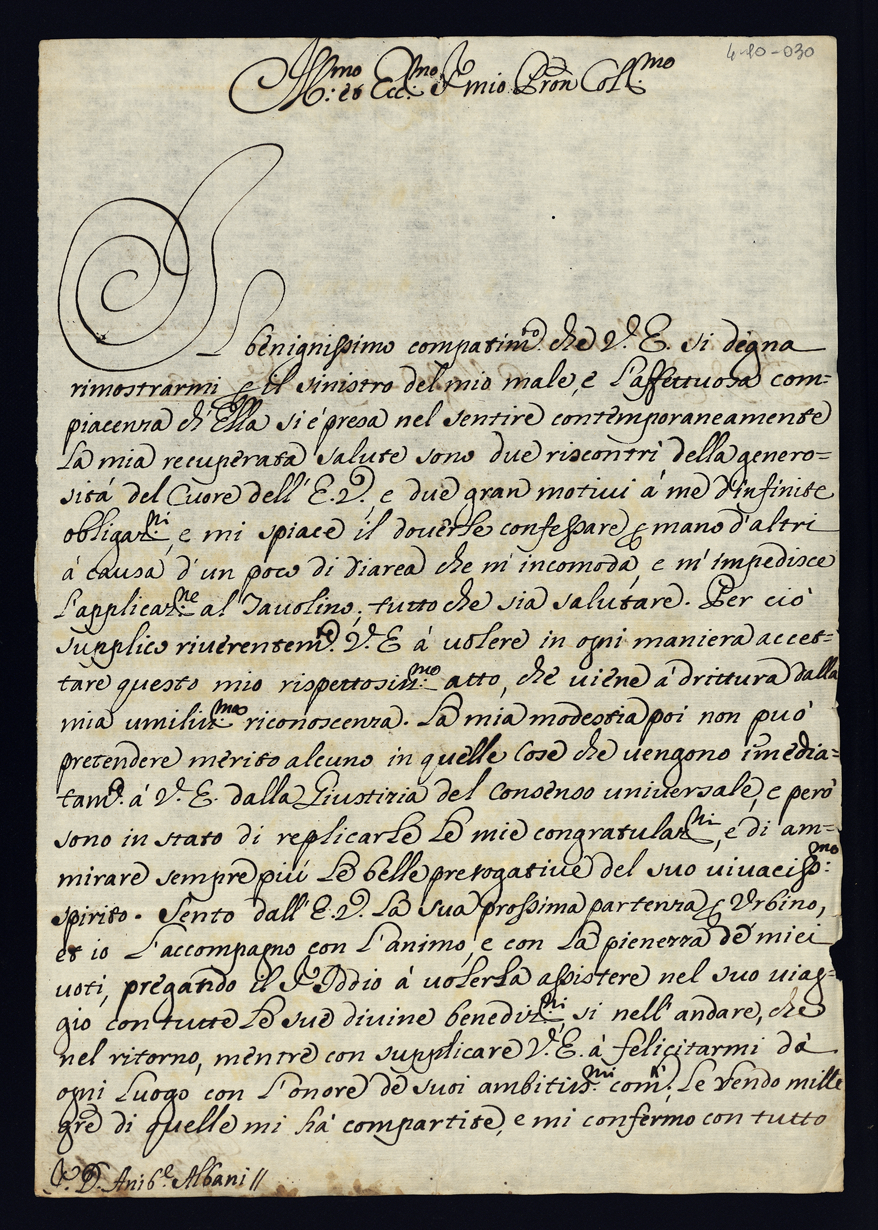 4-10-030
Ill.mo et Ecc.mo S.r mio Pron Coll.mo
Il benignissimo compatim.to che V.E. si degna
rimostrarmi per il sinistro del mio male, e l'affettuosa com=
piacenza ch'Ella si é presa nel sentire contemporaneamente
la mia recuperata salute sono due riscontri della genero=
sitá del Cuore dell'E.V., e due gran motivi á me d'infinite
obligaz.ni, e mi spiace il doverle confessare per mano d'altri
á causa d'un poco di diarea che m'incomoda, e m'impedisce
l'applicaz.ne al Tavolino, tutto che sia salutare. Per ció
supplico riverentem.te V.E á volere in ogni maniera accet=
tare questo mio rispettosiss.mo atto, che viene á drittura dalla
mia umiliss.ma riconoscenza. La mia modestia poi non puó
pretendere merito alcuno in quelle cose che vengono imedia=
tam.e á V.E. dalla Giustizia del consenso universale, e peró
sono in stato di replicarle le mie congratulaz.ni, e di am=
mirare sempre piú le belle prerogative del suo vivaciss.mo
spirito. Sento dall'E.V. la sua prossima partenza per Urbino,
et io l'accompagno con l'animo, e con la pienezza de miei
voti, pregando il S.r Iddio á volerla assistere nel suo viag=
gio con tutte le sue divine benediz.ni si nell'andare, che
nel ritorno, mentre con supplicare V.E. á felicitarmi dá
ogni luogo con l'onore de suoi ambitiss.mi com.di, le rendo mille
gre di quelle mi há compartite, e mi confermo con tutto
S.r D. Anib.e Albani //